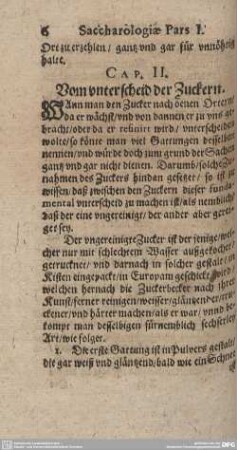 6 Saccharologiæ Pars I.
Ort zu erzehlen / gantz vnd gar für vnnöhtig
halte.
CAP. II.
Vom vnterscheid der Zuckern.
WAnn man den Zucker nach denen Ortern /
da er wächst / vnd von dannen er zu vns ge-
bracht / oder da er refinirt wird / vnterscheiden
wolte / so könte man viel Gattungen desselben
nennen / vnd würde doch zum grund der Sachen
gantz vnd gar nicht dienen. Darumb / solche Zu-
nahmen des Zuckers hindan gesetzt / so ist zu
wissen / daß zwischen den Zuckern dieser funda-
mental vnterscheid zu machen ist / als nemblich /
daß der eine vngereinigt / der ander aber gereini-
get sey.
Der vngereinigte Zucker ist der jenige / wel-
cher nur mit schlechtem Wasser auffgekochet /
getruckner / vnd darnach in solcher gestalt in
Kisten eingepackt / in Europam geschickt wird /
welchen hernach die Zuckerbecker nach jhrer
Kunst / ferner reinigen / weisser / gläntzender /
ckener / vnd härter machen / als er war / vnnd be-
kompt man desselbigen fürnemblich sechserley
Art / wie folget.
1. Die erste Gattung ist in Pulvers gestalt /
die gar weiß vnd gläntzend / bald wie ein Schnee